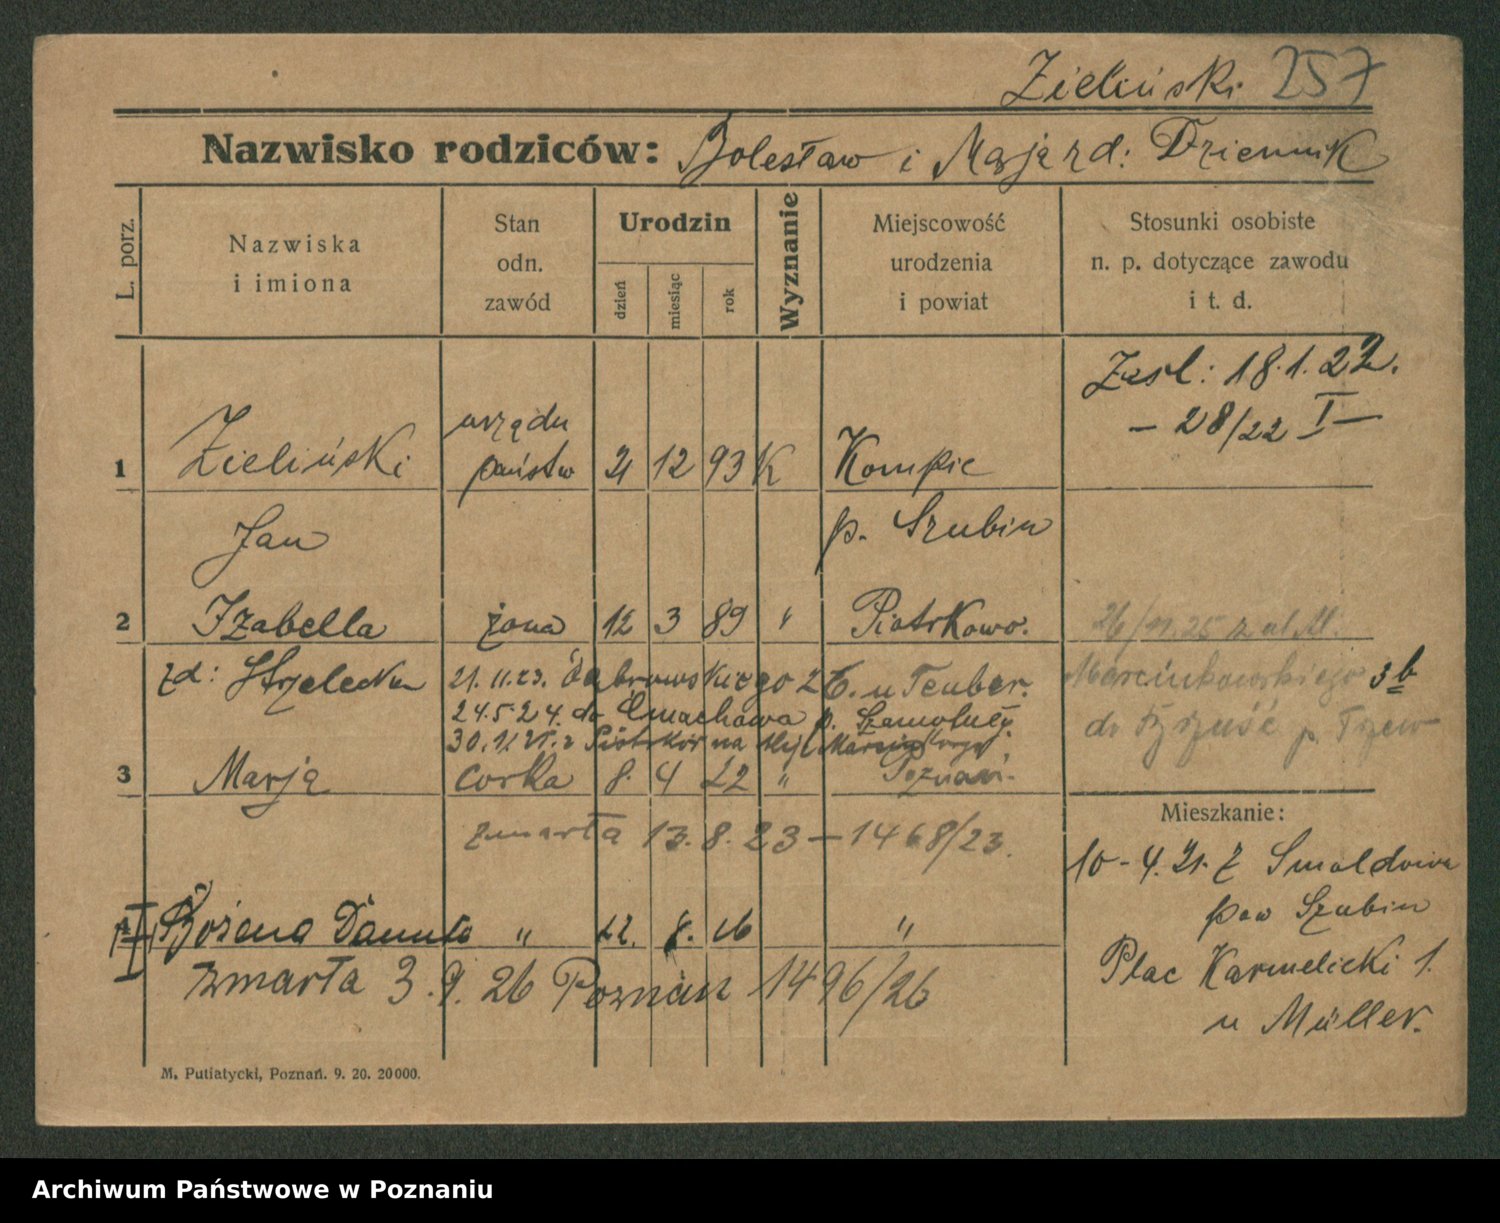 Zieliński 257
Nazwisko rodziców: Bolesław i Marja zd: Dziennik
L. porz.
Nazwiska
i imiona
Stan
odn.
zawód
Urodzin
dzień
miesiąc
rok
Wyznanie
Miejscowość
urodzenia
i powiat
Stosunki osobiste
n. p. dotyczące zawodu
i t. d.
Zasl: 18.1.22.
- 28/22 I -
urzędn
1 Zieliński państw 21 12 93 K
Jan p. Szubin
2 Izabella żona 12 3 89 " Piotrkowo.
26/11.25 z ul. M.
zd: Strzelecka 21.11.23. Dąbrowskiego 26. u Teuber.
Marcinkowskiego 3b
24.5.24. do Ćmachowa p. Szamotuły.
30.11.25. z
do p. Tczew
3 Marja corka 8. 4 22 " Poznań.
zmarła 13.8.23 - 1468/23.
Mieszkanie:
10-4.21. Z
pow Szubin
Bożena Danuta " 22. 8. 26 "
zmarła 3.9.26 Poznań 1496/26
Plac Karmelicki 1.
u Müller.
M. Putiatycki, Poznań. 9. 20. 20000.
Archiwum Państwowe w Poznaniu